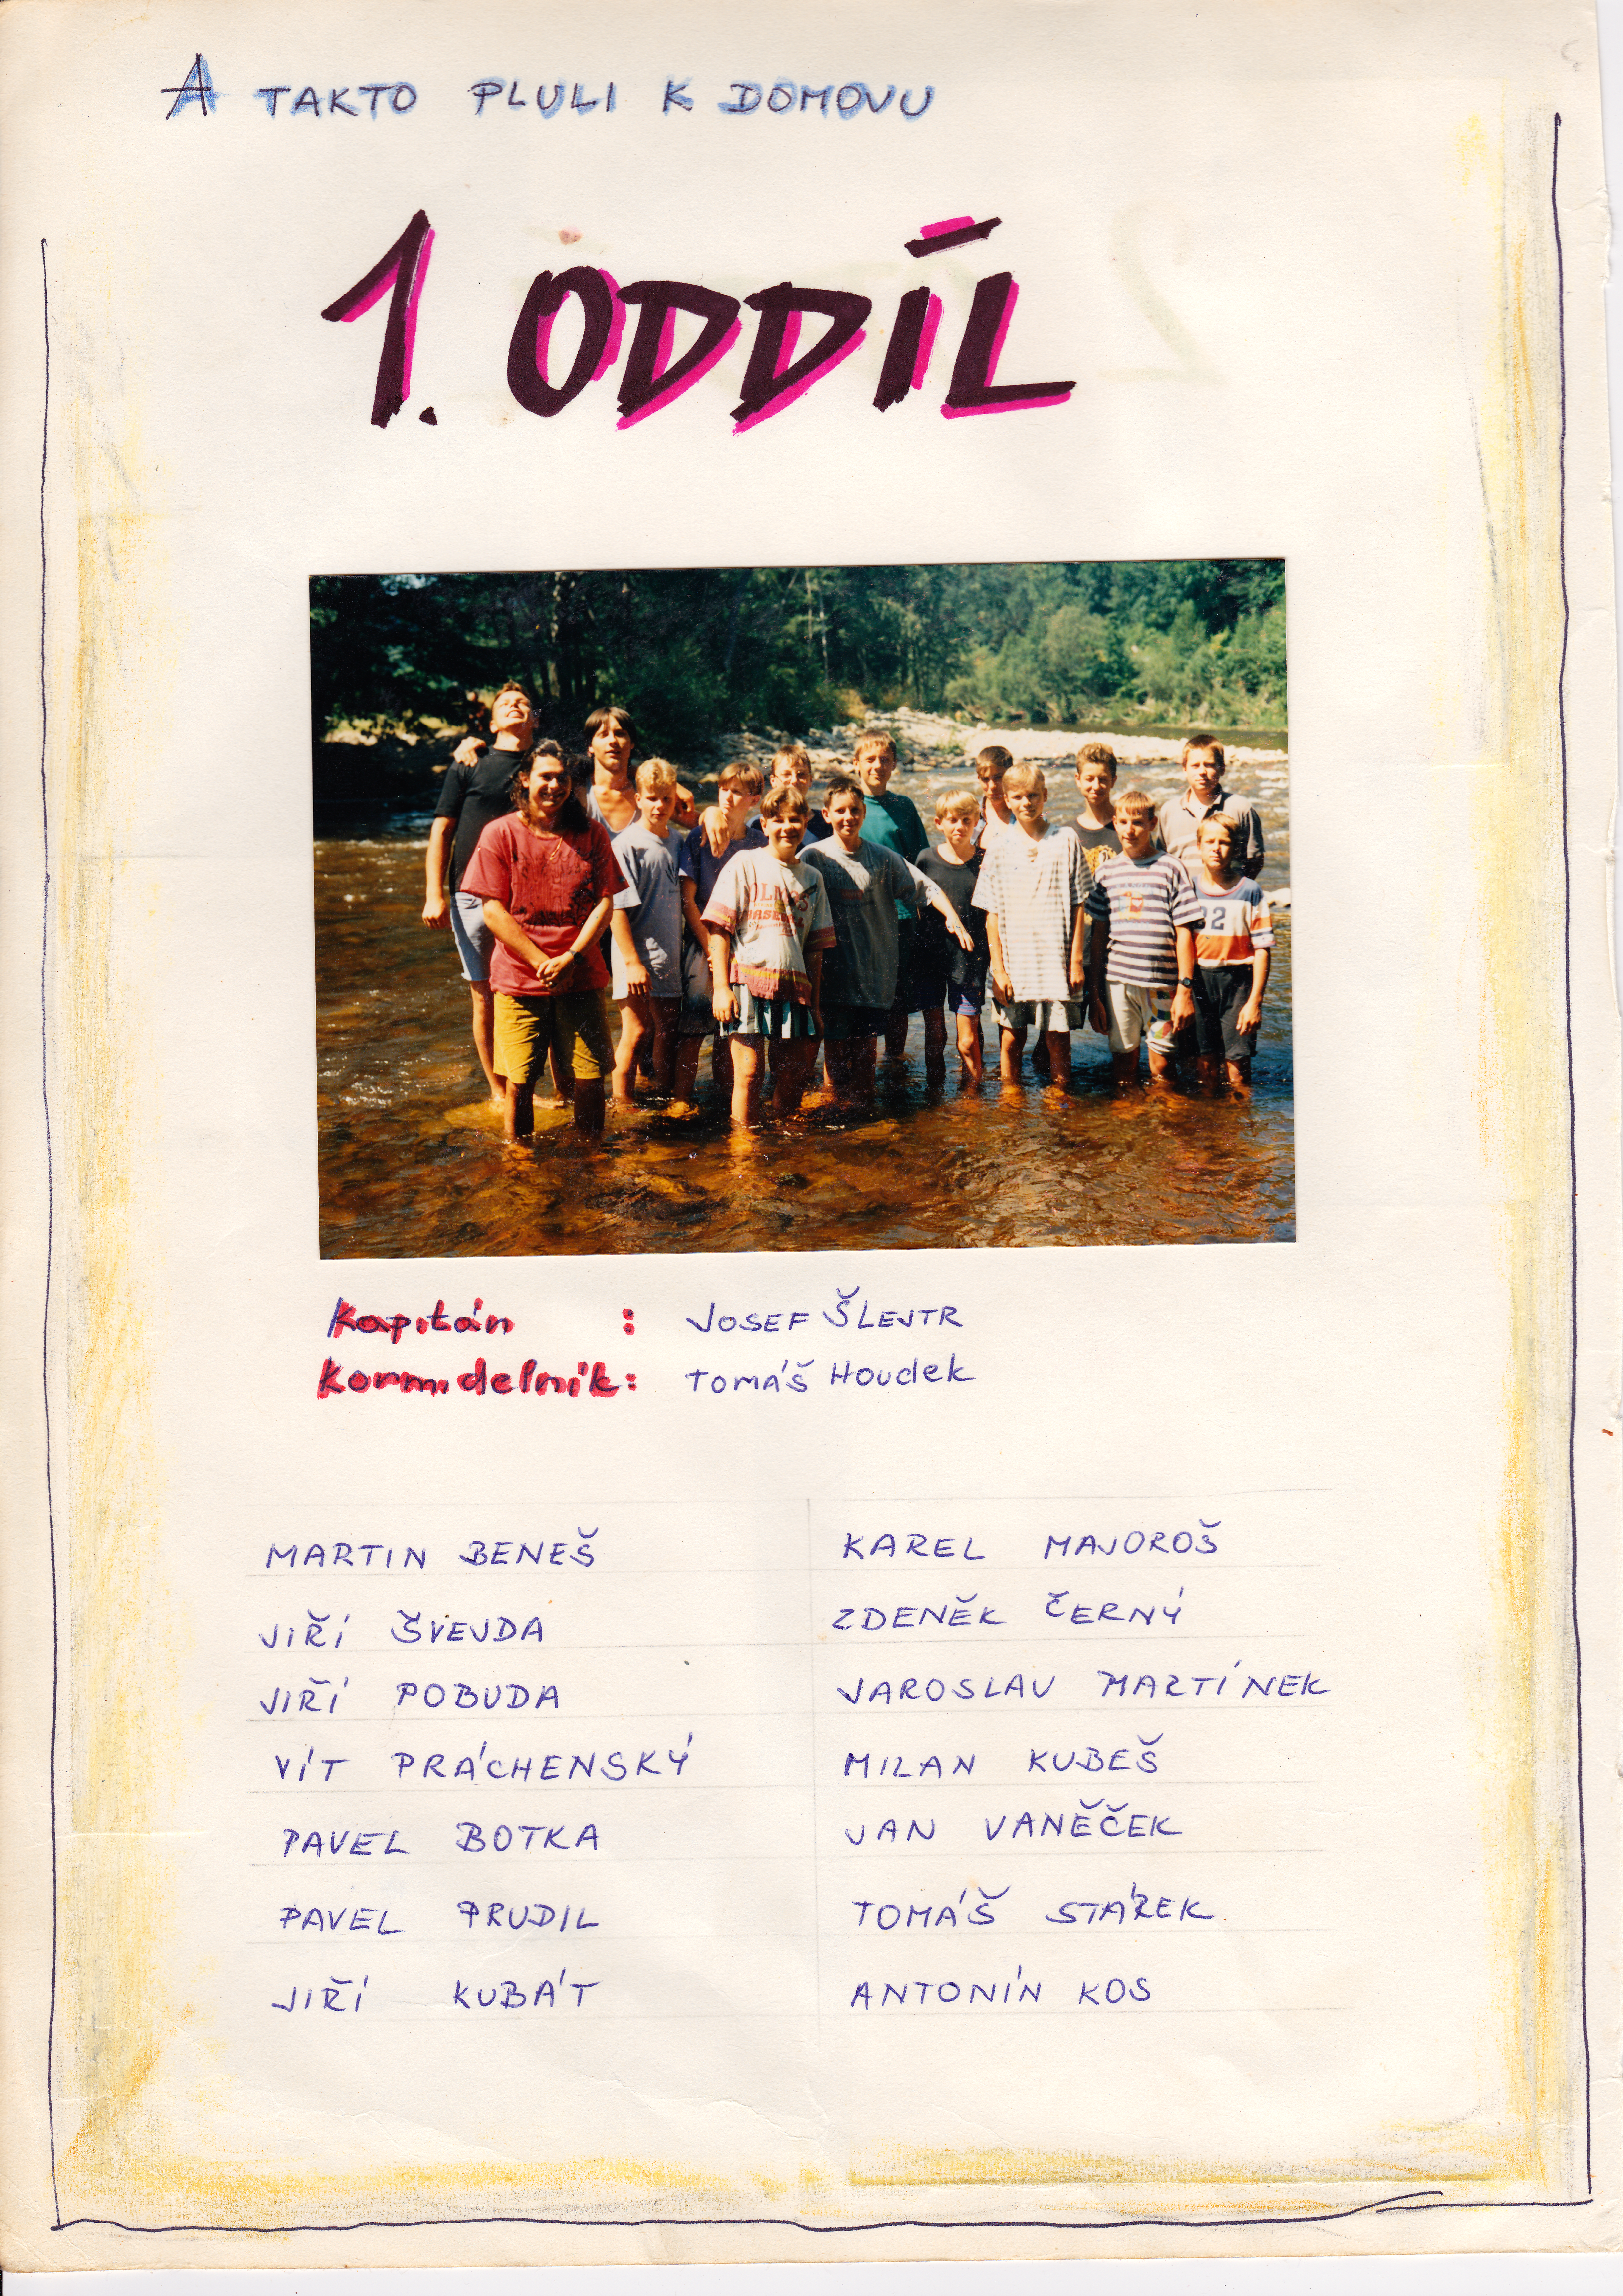 A TAKTO PLULI K DOMOVU
1. ODDÍL
Kapitán : JOSEF ŠLEJTR
Kormidelník: TOMÁŠ Houdek
MARTIN BENEŠ
JIŘÍ ŠVEJDA
JIŘÍ POBUDA
VÍT PRÁCHENSKÝ
PAVEL BOTKA
PAVEL PRUDIL
JIŘÍ KUBÁT
KAREL MAJOROŠ
ZDENĚK ČERNÝ
JAROSLAV MARTÍNEK
MILAN KUBEŠ
JAN VANĚČEK
TOMÁŠ STÁREK
ANTONÍN KOS